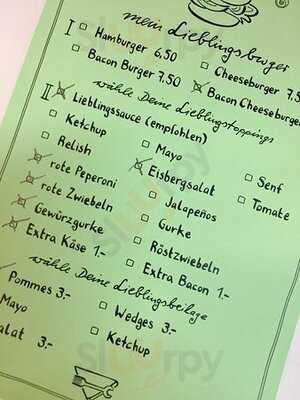 mein Lieblingsburger
I Hamburger 6,50 Cheeseburger 7.5
Bacon Burger 7.50 Bacon Cheeseburger
wähle Deine Lieblingstoppings
II Lieblingssauce (empfohlen)
Ketchup Mayo Senf
Relish Eisbergsalat Tomate
rote Peperoni Jalapeños
rote Zwiebeln Gurke
Gewürzgurke Röstzwiebeln
Extra Käse 1.- Extra Bacon 1.-
wähle Deine Lieblingsbeilage
Pommes 3.- Wedges 3.-
Mayo Ketchup
alat 3.-